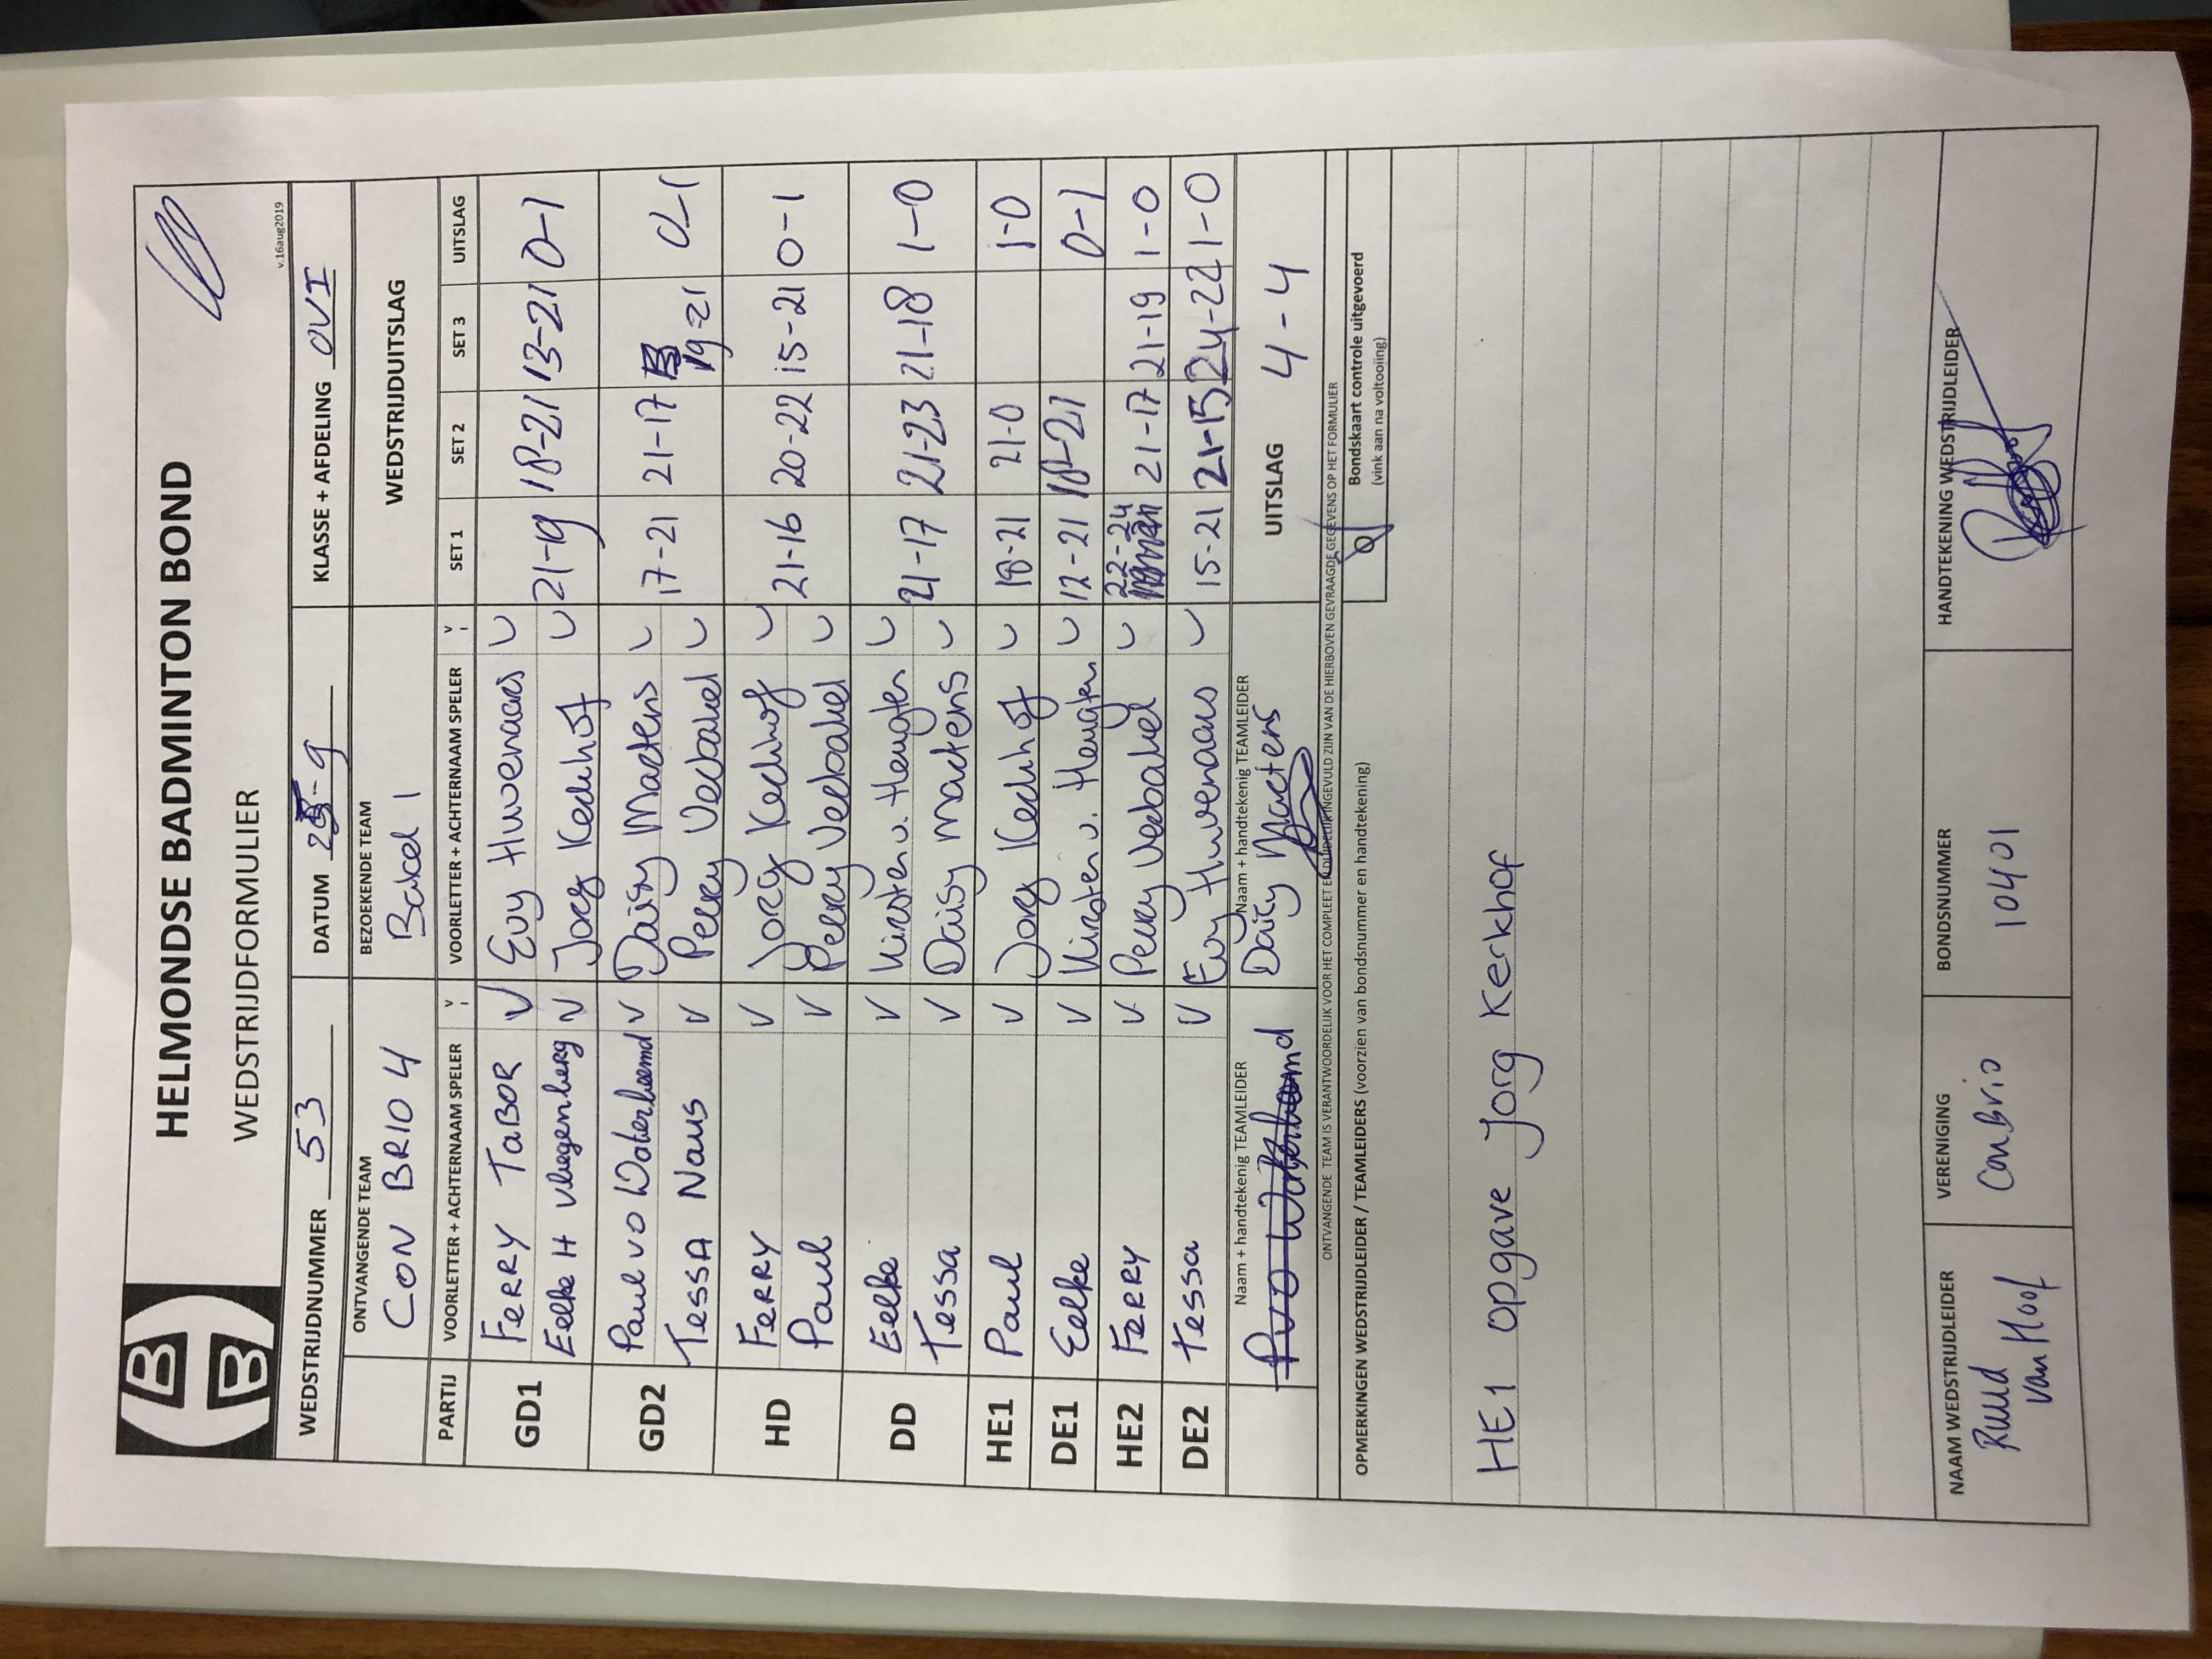 HELMONDSE BADMINTON BOND
WEDSTRIJDFORMULIER
v.16aug2019
WEDSTRIJDNUMMER 53 DATUM 25-9 KLASSE + AFDELING OVI
ONTVANGENDE TEAM BEZOEKENDE TEAM WEDSTRIJDUITSLAG
CON BRIO 4 Bakel 1
PARTIJ VOORLETTER + ACHTERNAAM SPELER V VOORLETTER + ACHTERNAAM SPELER V SET 1 SET 2 SET 3 UITSLAG
GD1 FERRY TABOR V Evy Huvenaars V 21-19 18-21 13-21 0-1
Eelke H Vliegenberg V Jorg Kerkhof V
GD2 Paul vd Waterbeemd V Daisy Martens V 17-21 21-17 19-21 0-1
TESSA Naus V Perry Verbakel V
HD FERRY V Jorg Kerkhof V 21-16 20-22 15-21 0-1
Paul V Perry Verbakel V
DD Eelke V Kirsten v. Heugten V 21-17 21-23 21-18 1-0
Tessa V Daisy Martens V
HE1 Paul V Jorg Kerkhof V 18-21 21-0 1-0
DE1 Eelke V Kirsten v. Heugten V 12-21 18-21 0-1
HE2 FERRY V Perry Verbakel V 22-24 21-17 21-19 1-0
DE2 Tessa V Evy Huvenaars V 15-21 21-15 24-22 1-0
Naam + handtekenig TEAMLEIDER Naam + handtekenig TEAMLEIDER
P vd Waterbeemd Daisy Martens UITSLAG 4-4
ONTVANGENDE TEAM IS VERANTWOORDELIJK VOOR HET COMPLEET EN DUIDELIJK INGEVULD ZIJN VAN DE HIERBOVEN GEVRAAGDE GEGEVENS OP HET FORMULIER
OPMERKINGEN WEDSTRIJDLEIDER / TEAMLEIDERS (voorzien van bondsnummer en handtekening)
Bondskaart controle uitgevoerd
(vink aan na voltooiing)
HE1 opgave Jorg Kerkhof
NAAM WEDSTRIJDLEIDER VERENIGING BONDSNUMMER HANDTEKENING WEDSTRIJDLEIDER
Ruud van Hoof ConBrio 10401